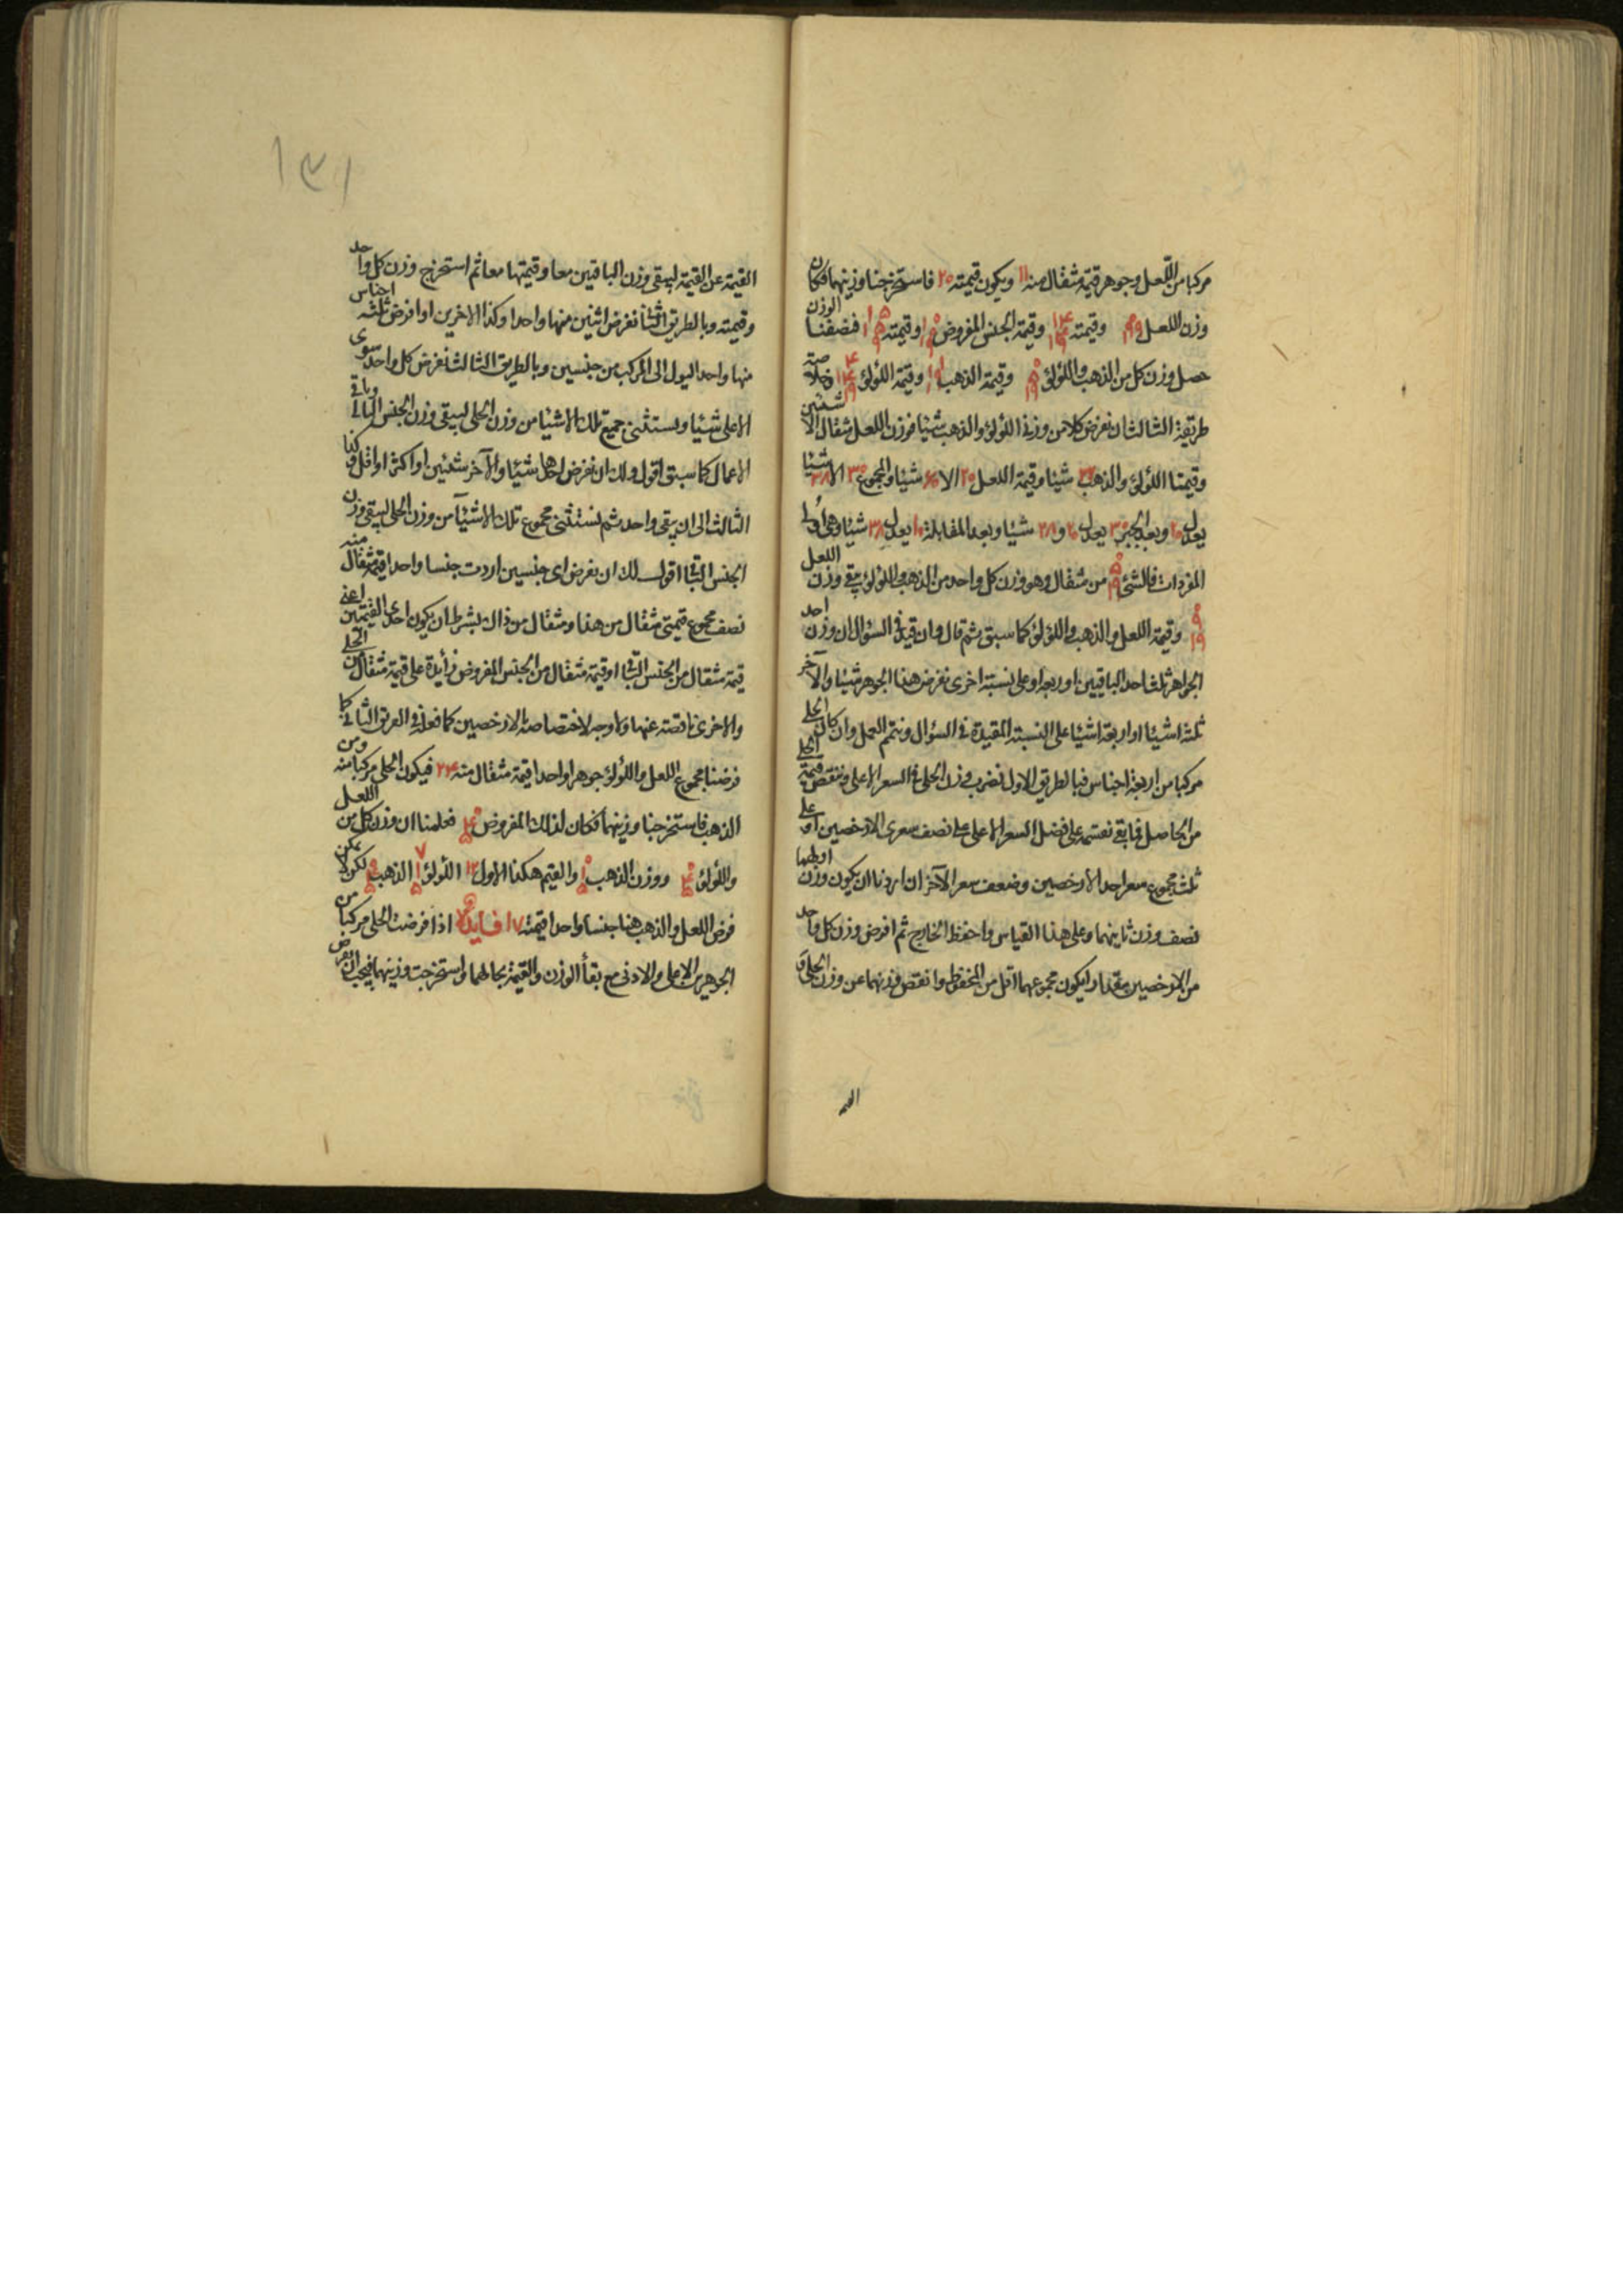 مركبا من اللعل وجوهر قيمة مثقال منه ١١ ويكون قيمته ٢٥ فاستخرجنا وزنهما فكان
وزن اللعل وقيمته وقيمة الجنس المفروض وقيمته فنصفنا الوزن
حصل وزن كل من الذهب واللؤلؤ وقيمة الذهب وقيمة اللؤلؤ وخلاصة
طريقة الثالث ان نفرض كلا من وزنى اللؤلؤ والذهب شيئا فوزن اللعل مثقال الا شيئين
وقيمتا اللؤلؤ والذهب ٢٢ شيئا وقيمة اللعل ٣٠ الا ٦٠ شيئا والمجموع ٣٠ الا ٣٨ شيئا
يعدل ٢٠ وبعد الجبر ٣٠ يعدل ٢٠ و ٣٨ شيئا وبعد المقابلة ١٠ يعدل ٣٨ شيئا وهى اولى
المفردات فالشئ من مثقال وهو وزن كل واحد من الذهب واللؤلؤ بقى وزن اللعل
٩ ١٩ وقيمة اللعل والذهب واللؤلؤ كما سبق ثم قال وان قيل فى السؤال ان وزن احد
الجواهر ثلث احد الباقيين او ربعه او على نسبة اخرى نفرض هذا الجوهر شيئا والآخر
ثلثة اشيئا او اربعة اشيئا على النسبة المقيدة فى السؤال ونتمم العمل وان كان الحلى
مركبا من اربعة اجناس فبالطريق الاول نضرب وزن الحلى فى السعر الاعلى وننقص قيمة الحلى
من الحاصل فما بقى نقسمه على فضل السعر الاعلى على نصف سعرى الارخصين او على
ثلث مجموع سعر احد الارخصين وضعف سعر الآخر ان اردنا ان يكون وزن اولهما
نصف وزن ثانيهما وعلى هذا القياس واحفظ الخارج ثم افرض وزن كل واحد
من الارخصين مقدارا ليكون مجموعهما اقل من المحفوظ وانقص وزنهما عن وزن الحلى و
القيمة
١٣١
القيمة عن القيمة ليبقى وزن الباقيين معا وقيمتها معا ثم استخرج وزن كل واحد
وقيمته وبالطريق الثانى نفرض اثنين منها واحدا وكذا الاخرين او افرض ثلثة اجناس
منها واحدا ليول الى المركب من جنسين وبالطريق الثالث نفرض كل واحد سوى
الاعلى شيئا ويستثنى جميع تلك الاشيئا من وزن الحلى ليبقى وزن الجنس العالى وباقى
الاعمال كما سبق اقول ولك ان نفرض احدها شيئا والآخر شيئين او اكثر او اقل وكذا
الثالث الى ان يبقى واحد ثم نستثنى مجموع تلك الاشيئا من وزن الحلى ليبقى وزن
الجنس الباقى اقول لك ان نفرض اى جنسين اردت جنسا واحدا قيمة مثقال منه
نصف مجموع قيمتى مثقال من هذا ومثقال من ذاك بشرط ان يكون احدى القيمتين اعنى
قيمة مثقال من الجنس الباقى او قيمة مثقال من الجنس المفروض زائدة على قيمة مثقال من الحلى
والاخرى ناقصة عنها ولا وجه لاختصاصه بالارخصين كما فعله فى الطريق الثانى كما
فرضنا مجموع اللعل واللؤلؤ جوهرا واحدا قيمة مثقال منه ٢٤ فيكون الحلى مركبا منه ومن
الذهب فاستخرجنا وزنهما فكان لذلك المفروض فعلمنا ان وزن كل من اللعل
واللؤلؤ ووزن الذهب والقيم هكذا الاول ١٢ اللؤلؤ الذهب لكن لا يمكن
فرض اللعل والذهب هنا جنسا واحدا قيمته ١٧ فايدة اذا فرضت الحلى مركبا من
الجوهرين الاعلى والادنى مع بقأ الوزن والقيمة بحالهما واستخرجت وزنهما فيجب ان نفرض